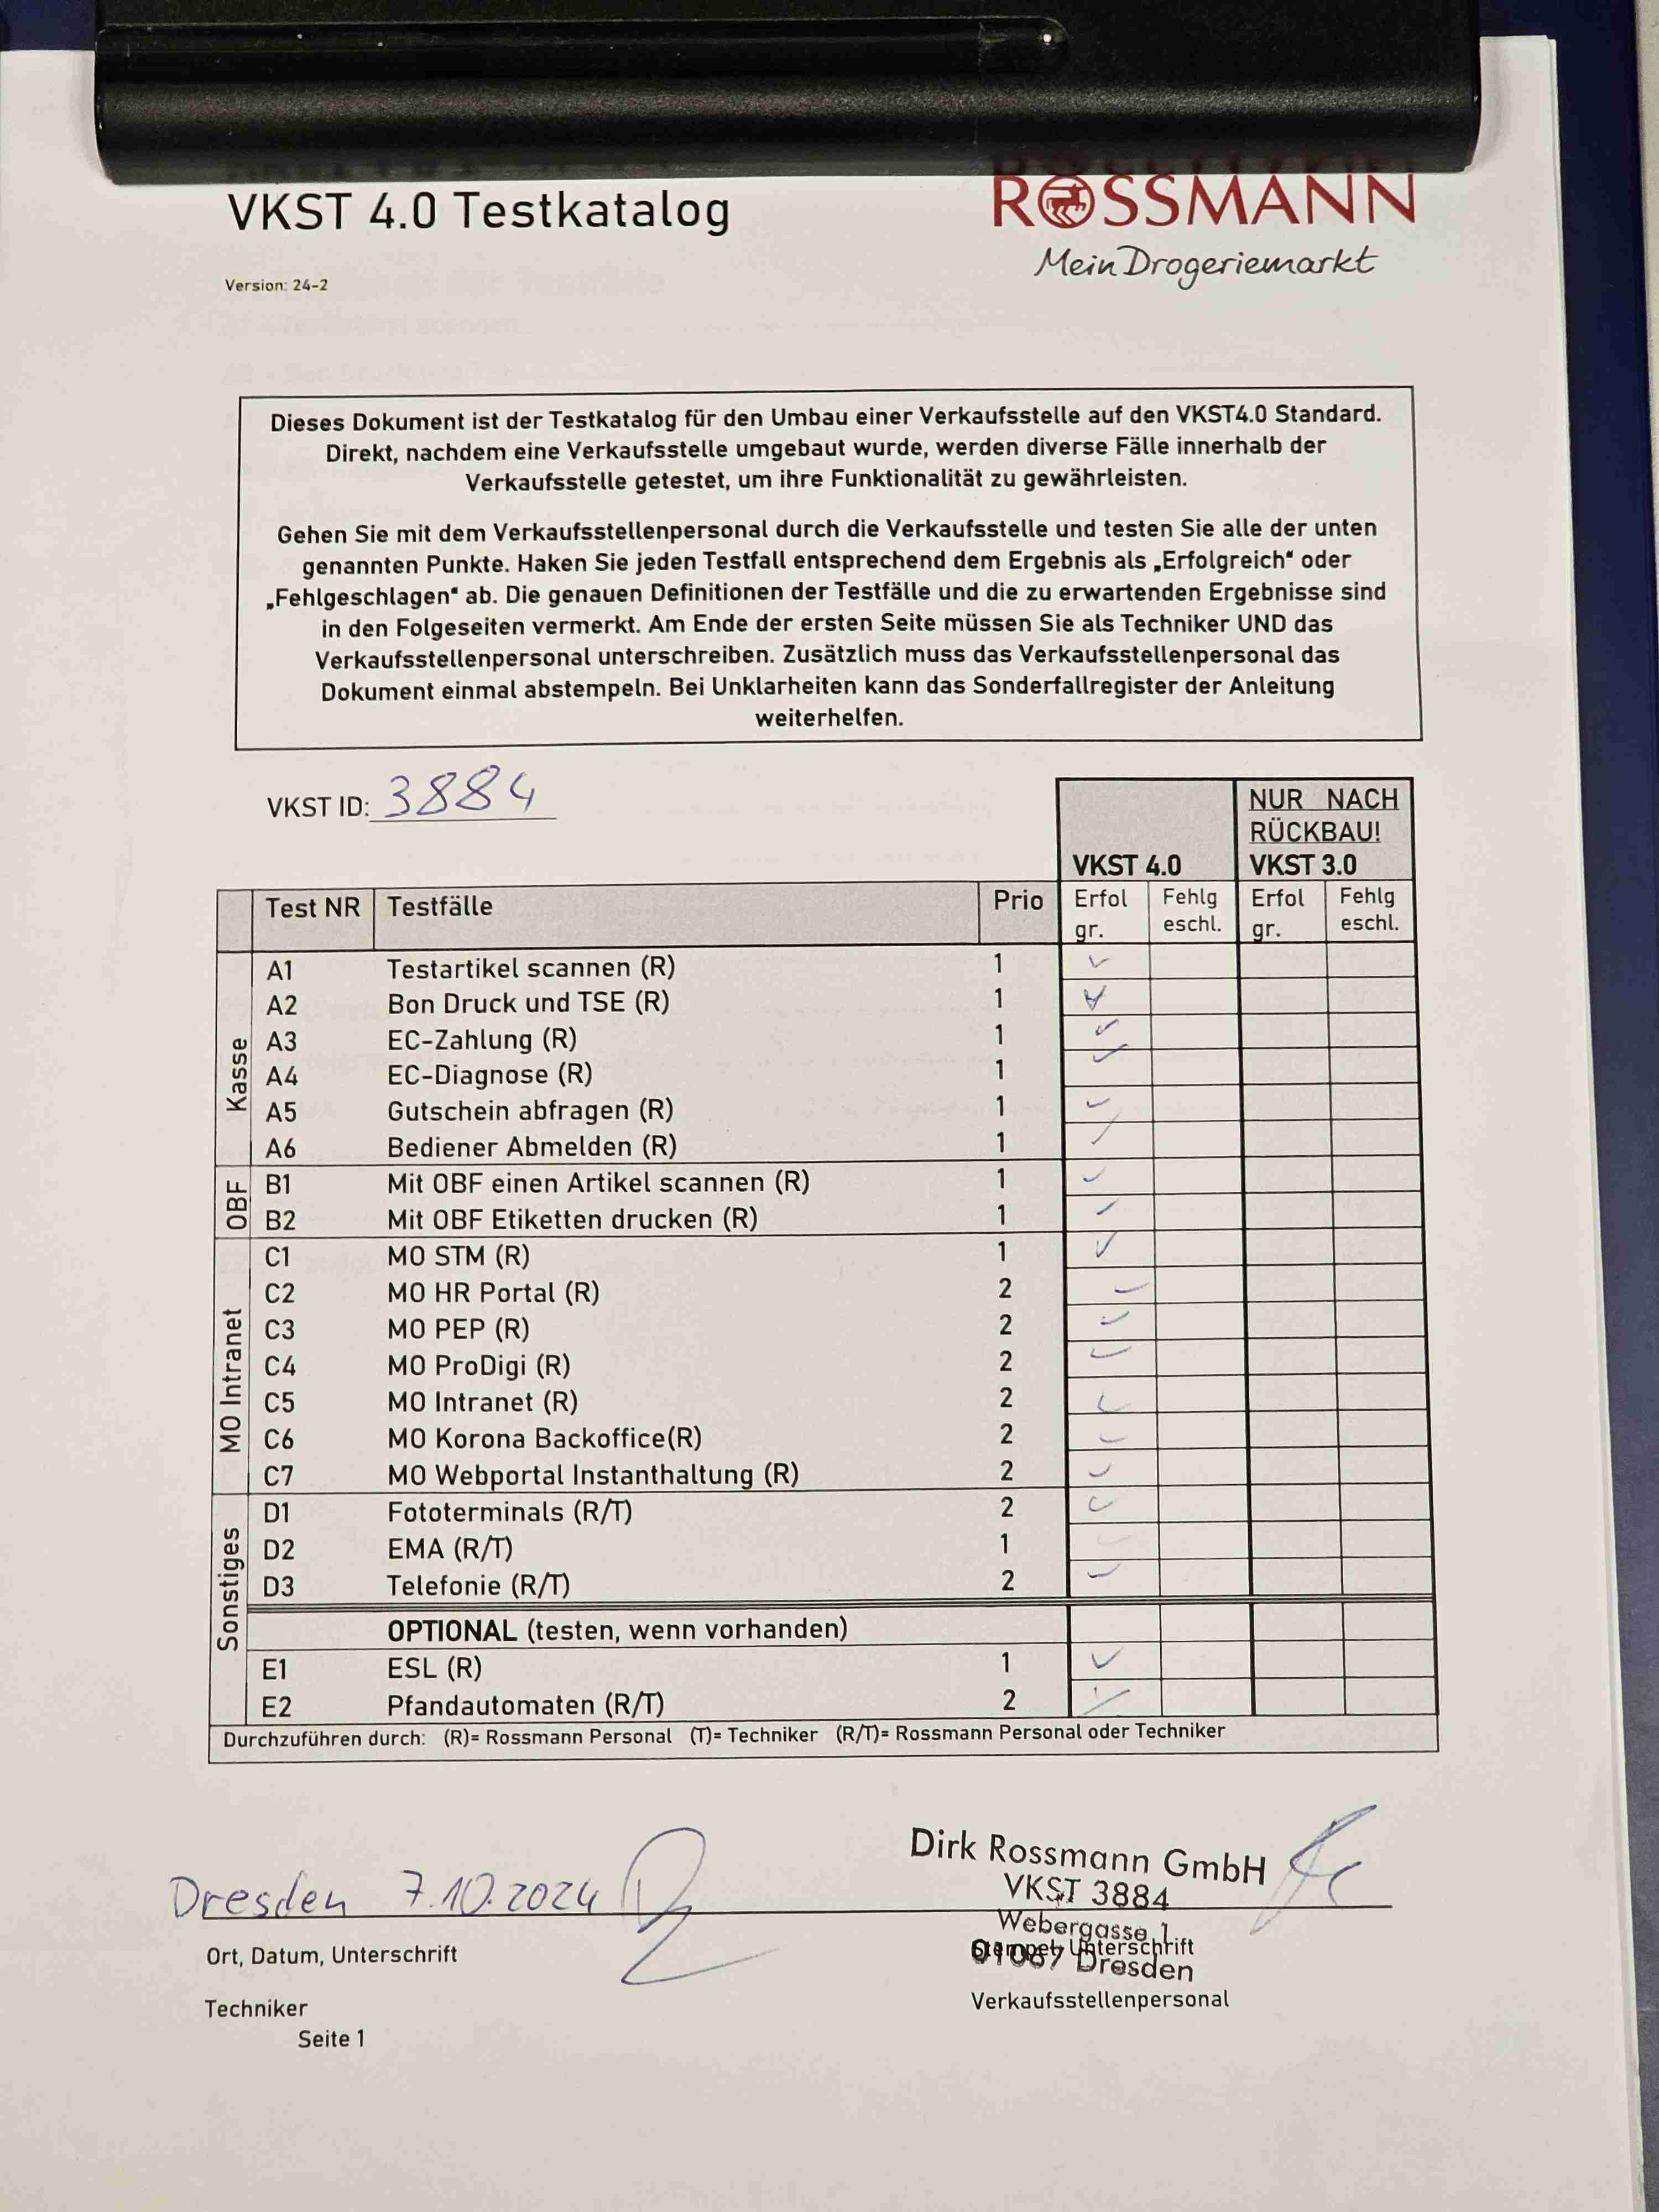 VKST 4.0 Testkatalog
ROSSMANN
Mein Drogeriemarkt
Version: 24-2
Dieses Dokument ist der Testkatalog für den Umbau einer Verkaufsstelle auf den VKST4.0 Standard.
Direkt, nachdem eine Verkaufsstelle umgebaut wurde, werden diverse Fälle innerhalb der
Verkaufsstelle getestet, um ihre Funktionalität zu gewährleisten.
Gehen Sie mit dem Verkaufsstellenpersonal durch die Verkaufsstelle und testen Sie alle der unten
genannten Punkte. Haken Sie jeden Testfall entsprechend dem Ergebnis als „Erfolgreich“ oder
„Fehlgeschlagen“ ab. Die genauen Definitionen der Testfälle und die zu erwartenden Ergebnisse sind
in den Folgeseiten vermerkt. Am Ende der ersten Seite müssen Sie als Techniker UND das
Verkaufsstellenpersonal unterschreiben. Zusätzlich muss das Verkaufsstellenpersonal das
Dokument einmal abstempeln. Bei Unklarheiten kann das Sonderfallregister der Anleitung
weiterhelfen.
VKST ID: 3884
VKST 4.0
NUR NACH
RÜCKBAU!
VKST 3.0
Test NR Testfälle Prio Erfol Fehlg Erfol Fehlg
gr. eschl. gr. eschl.
Kasse
A1 Testartikel scannen (R) 1 ✓
A2 Bon Druck und TSE (R) 1 ✓
A3 EC-Zahlung (R) 1 ✓
A4 EC-Diagnose (R) 1 ✓
A5 Gutschein abfragen (R) 1 ✓
A6 Bediener Abmelden (R) 1 ✓
OBF
B1 Mit OBF einen Artikel scannen (R) 1 ✓
B2 Mit OBF Etiketten drucken (R) 1 ✓
MO Intranet
C1 MO STM (R) 1 ✓
C2 MO HR Portal (R) 2 ✓
C3 MO PEP (R) 2 ✓
C4 MO ProDigi (R) 2 ✓
C5 MO Intranet (R) 2 ✓
C6 MO Korona Backoffice(R) 2 ✓
C7 MO Webportal Instanthaltung (R) 2 ✓
Sonstiges
D1 Fototerminals (R/T) 2 ✓
D2 EMA (R/T) 1 ✓
D3 Telefonie (R/T) 2 ✓
OPTIONAL (testen, wenn vorhanden)
E1 ESL (R) 1 ✓
E2 Pfandautomaten (R/T) 2 ✓
Durchzuführen durch: (R)= Rossmann Personal (T)= Techniker (R/T)= Rossmann Personal oder Techniker
Dresden 7.10.2024
Dirk Rossmann GmbH
VKST 3884
Webergasse 1
01067 Dresden
Ort, Datum, Unterschrift
Stempel, Unterschrift
Techniker
Verkaufsstellenpersonal
Seite 1